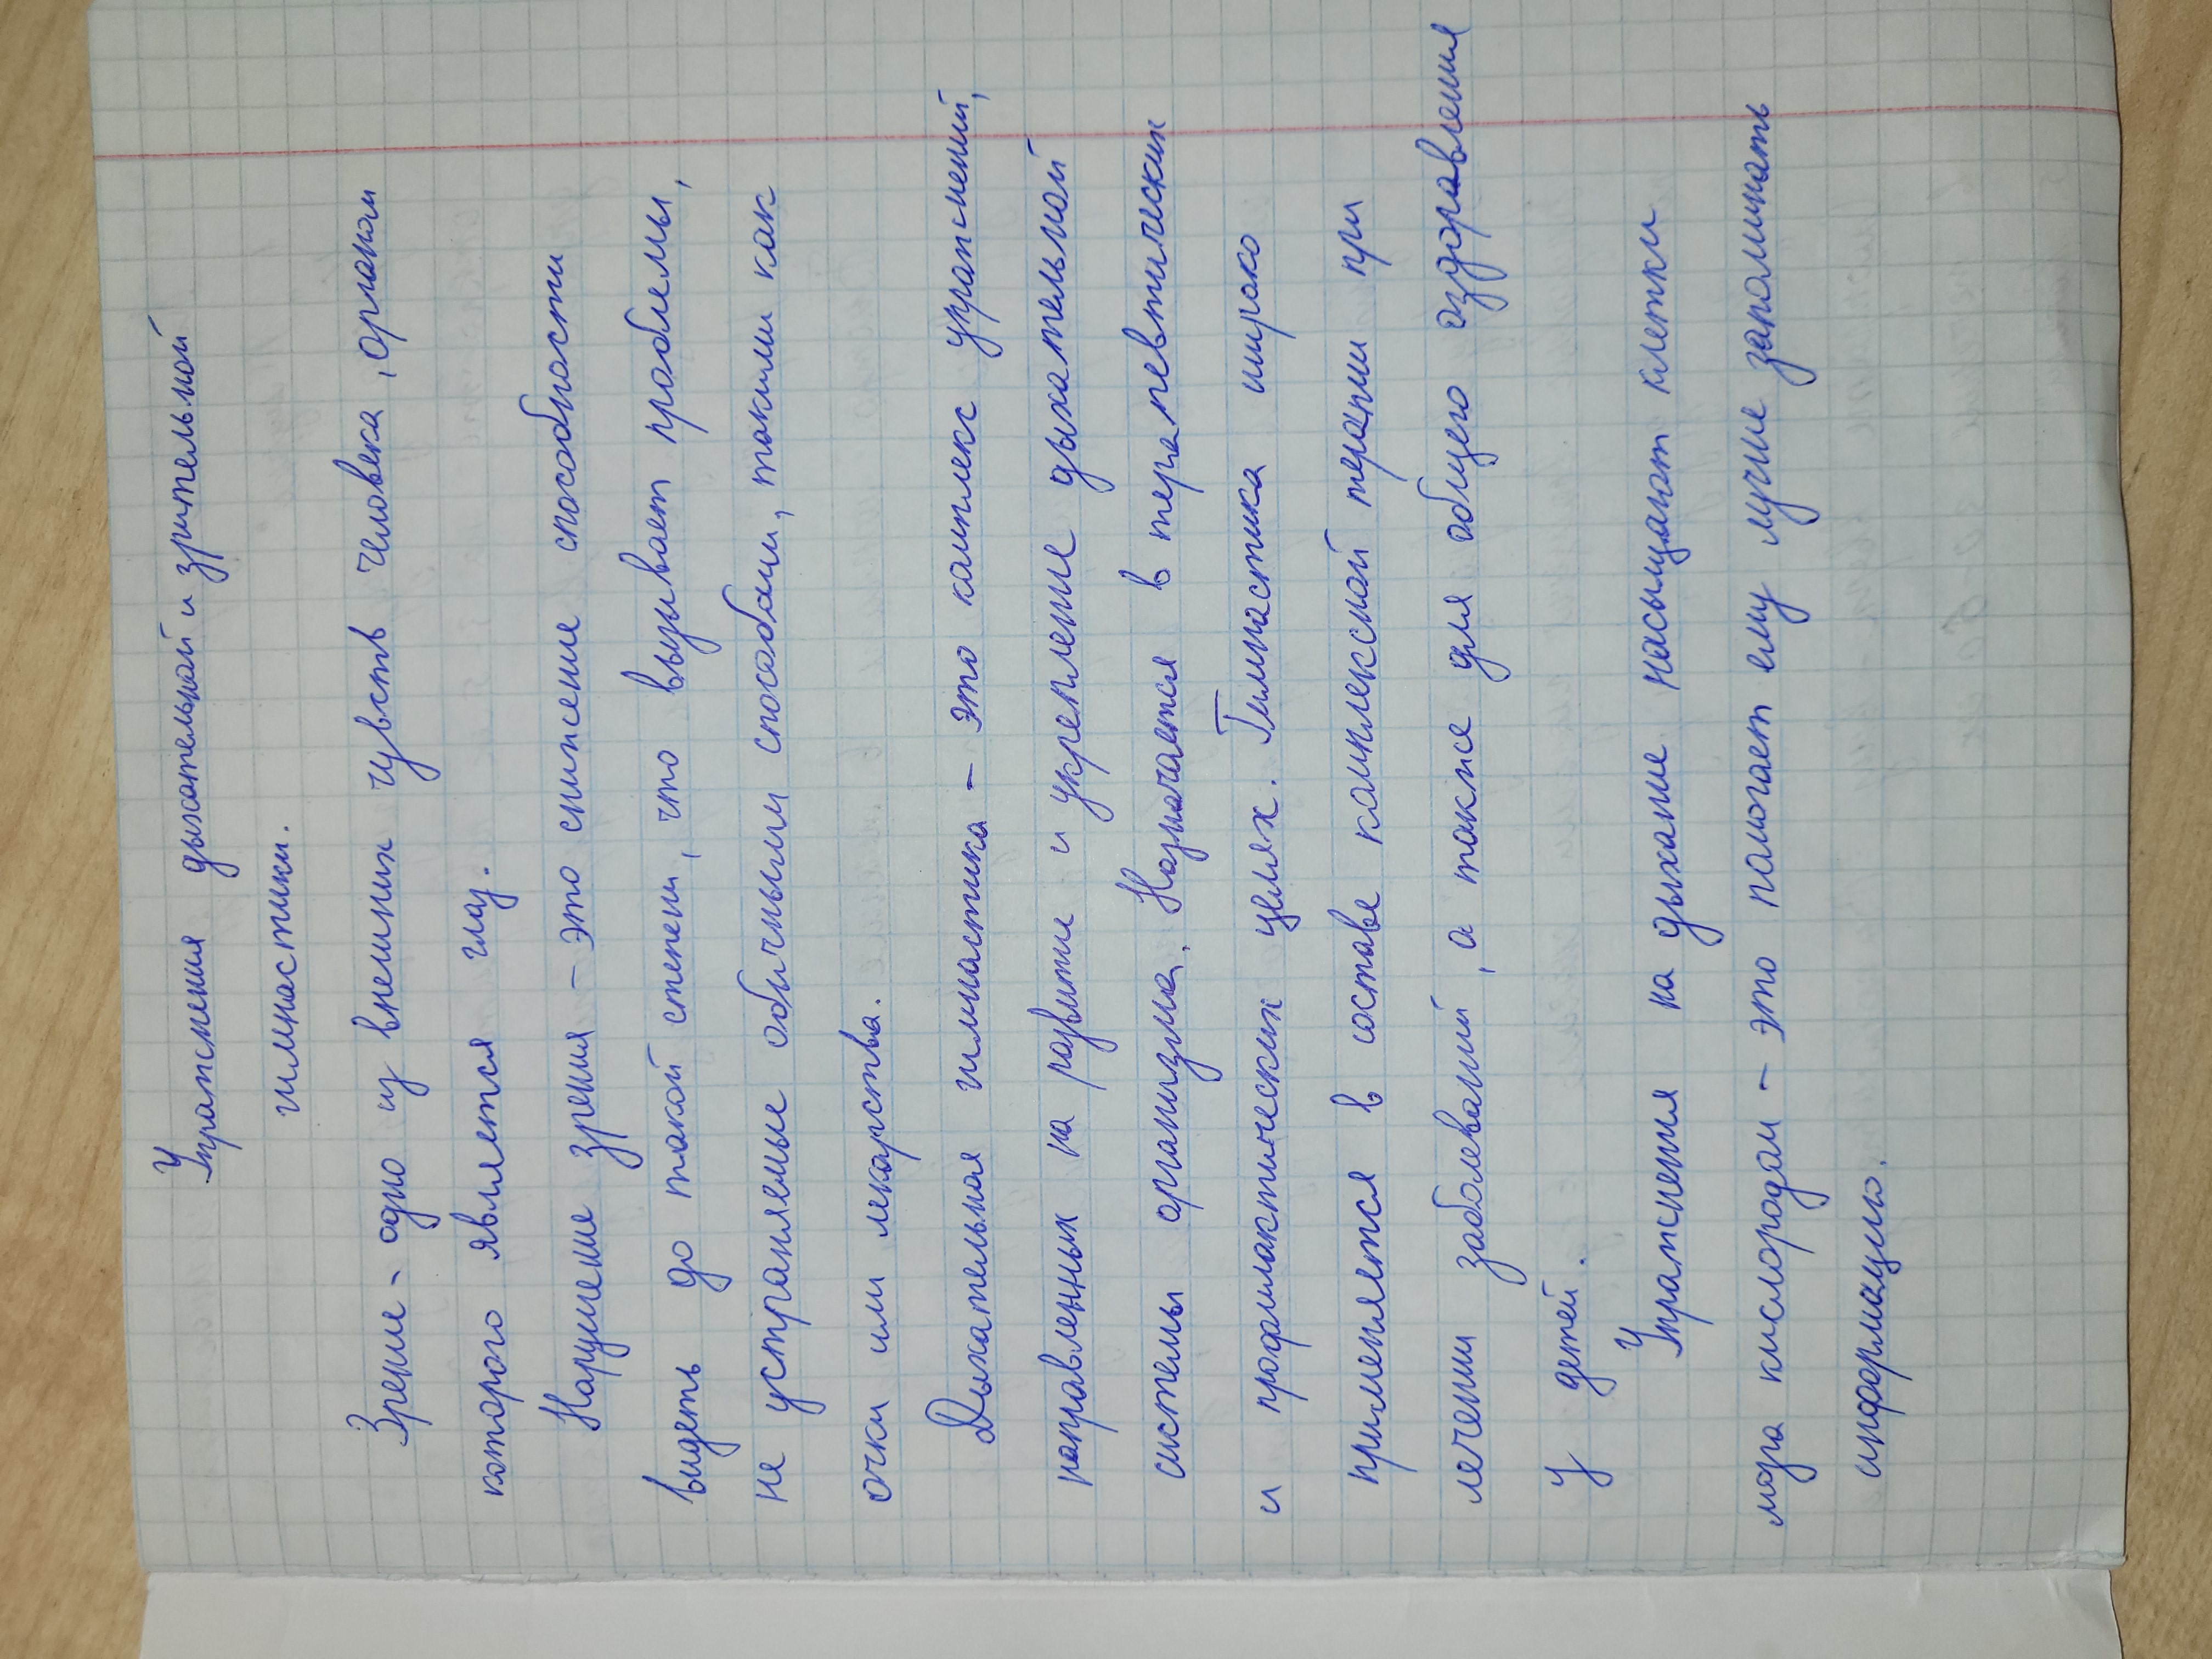 Упражнения дыхательной и зрительной
гимнастики.
Зрение - одно из внешних чувств человека, органом
которого является глаз.
Нарушение зрения - это снижение способности
видеть до такой степени, что вызывает проблемы,
не устраняемые обычными способами, такими как
очки или лекарства.
Дыхательная гимнастика - это комплекс упражнений,
направленных на развитие и укрепление дыхательной
системы организма. Назначается в терапевтических
и профилактических целях. Гимнастика широко
применяется в составе комплексной терапии при
лечении заболеваний, а также для общего оздоравления
у детей.
Упражнения на дыхание насыщают клетки
мозга кислородом - это помогает ему лучше запоминать
информацию.